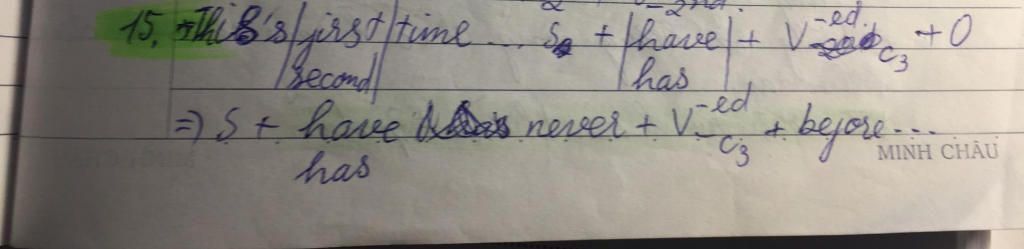 15. This's first time ... S + have + V-ed + O
second has c3
=> S + have never + V-ed + before...
has c3
MINH CHÂU